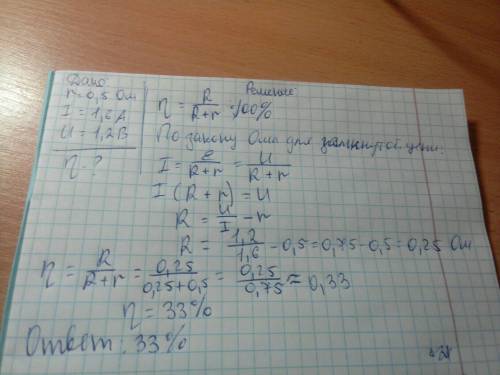 Дано
r=0,5 Ом
I = 1,6 А
U = 1,2 В
η - ?
Решение
η = R/(R+r) · 100%
По закону Ома для замкнутой цепи:
I = e/(R+r) = U/(R+r)
I (R+r) = U
R = U/I - r
R = 1,2/1,6 - 0,5 = 0,75 - 0,5 = 0,25 Ом
η = R/(R+r) = 0,25/(0,25+0,5) = 0,25/0,75 ≈ 0,33
η = 33%
Ответ: 33%